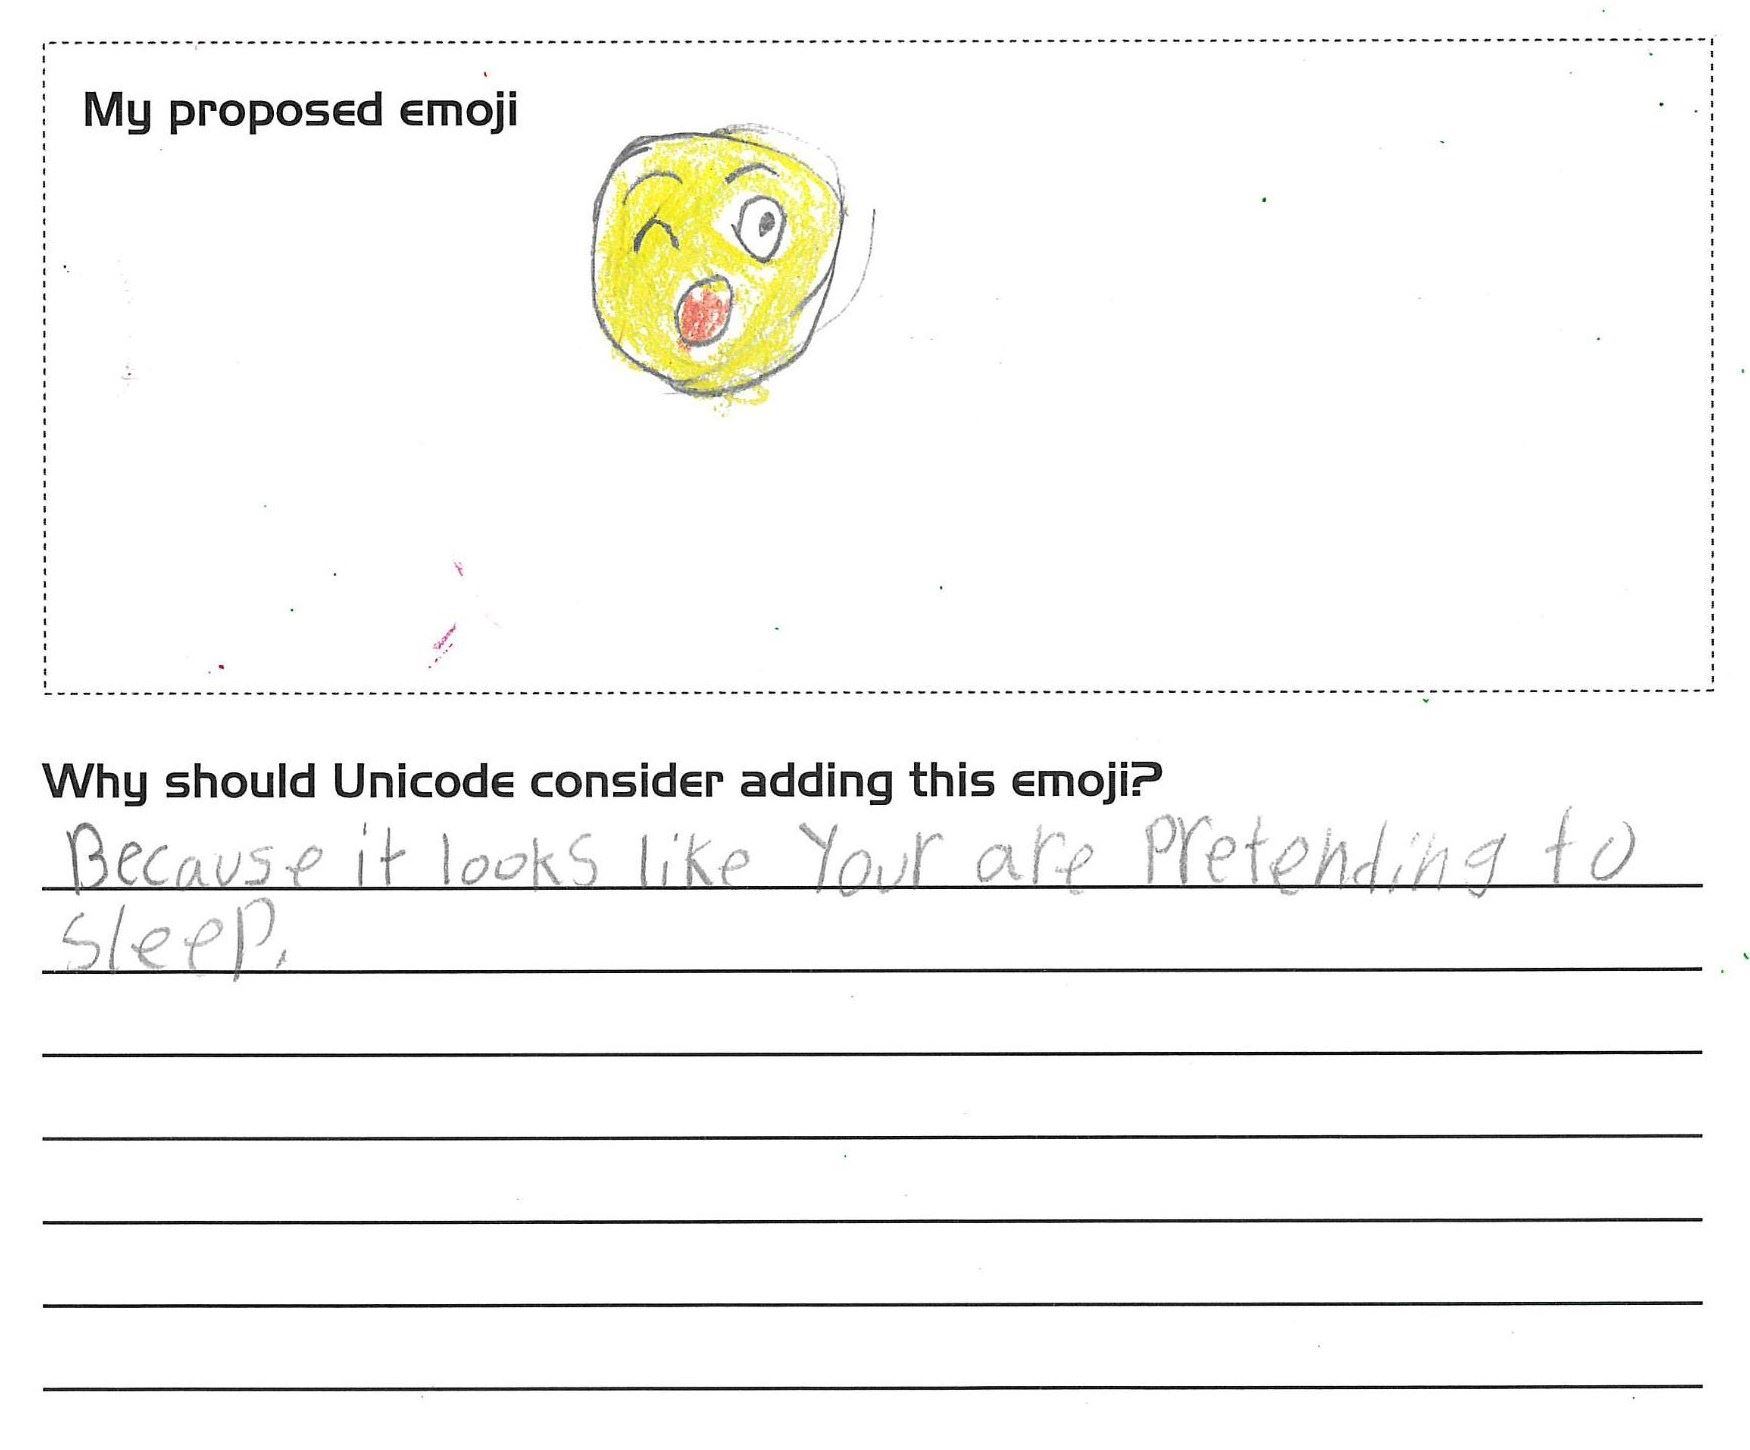 My proposed emoji
Why should Unicode consider adding this emoji?
Because it looks like Your are Pretending to
sleep.